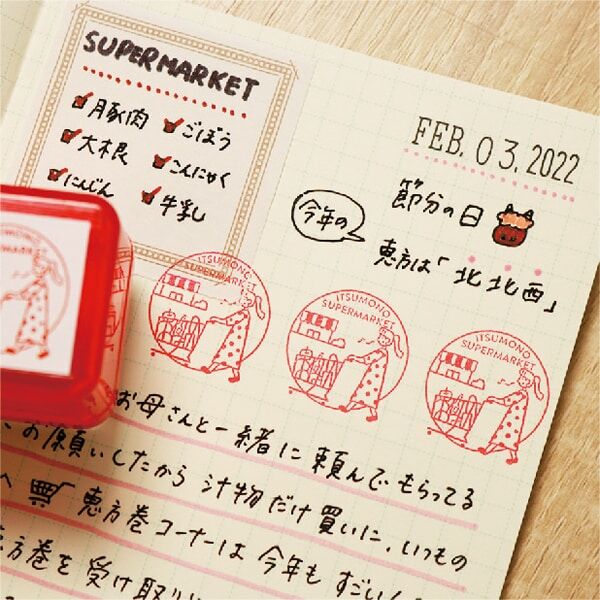 SUPERMARKET
豚肉 ごぼう
大根 こんにゃく
にんじん 牛乳
FEB. 03. 2022
節分の日
今年の
恵方は「北北西」
ITSUMONO
SUPERMARKET
ITSUMONO
SUPERMARKET
ITSUMONO
SUPERMARKET
お母さんと一緒に頼んでもらってる
お願いしたから汁物だけ買いに、いつもの
へ 恵方巻コーナーは今年もすごい
恵方巻を受け取り